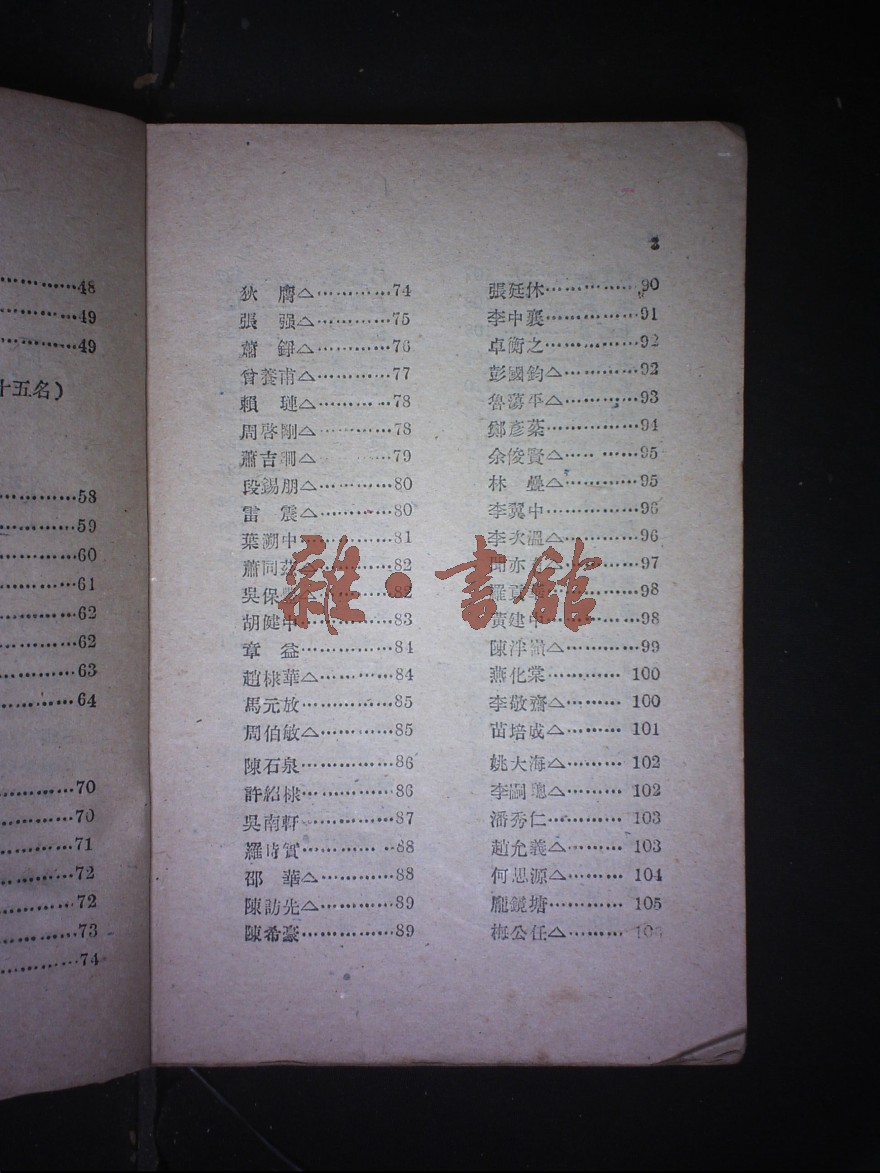 48
49
49
十五名)
58
59
60
61
62
62
63
64
70
70
71
72
72
73
74
3
狄　膺△…………74
張　强△…………75
蕭　錚△…………76
曾養甫△…………77
賴　璉△…………78
周啓剛△…………78
蕭吉珊△…………79
段錫朋△…………80
雷　震△…………80
葉溯中…………81
蕭同茲△…………82
吳保豐△…………82
胡健中…………83
章　益…………84
趙棣華△…………84
馬元放…………85
周伯敏△…………85
陳石泉…………86
許紹棣…………86
吳南軒…………87
羅時實…………88
邵　華△…………88
陳訪先△…………89
陳希豪…………89
張廷休…………90
李中襄…………91
卓衡之…………92
彭國鈞△…………92
魯蕩平△…………93
鄭彥棻…………94
余俊賢△…………95
林　疊△…………95
李翼中…………96
李次溫△…………96
聞亦…………97
羅貢華…………98
黃建中…………98
陳泮嶺△…………99
燕化棠…………100
李敬齋△…………100
苗培成△…………101
姚大海△…………102
李嗣璁△…………102
潘秀仁…………103
趙允義△…………103
何思源△…………104
龐鏡塘…………105
梅公任△…………106
雜·書館